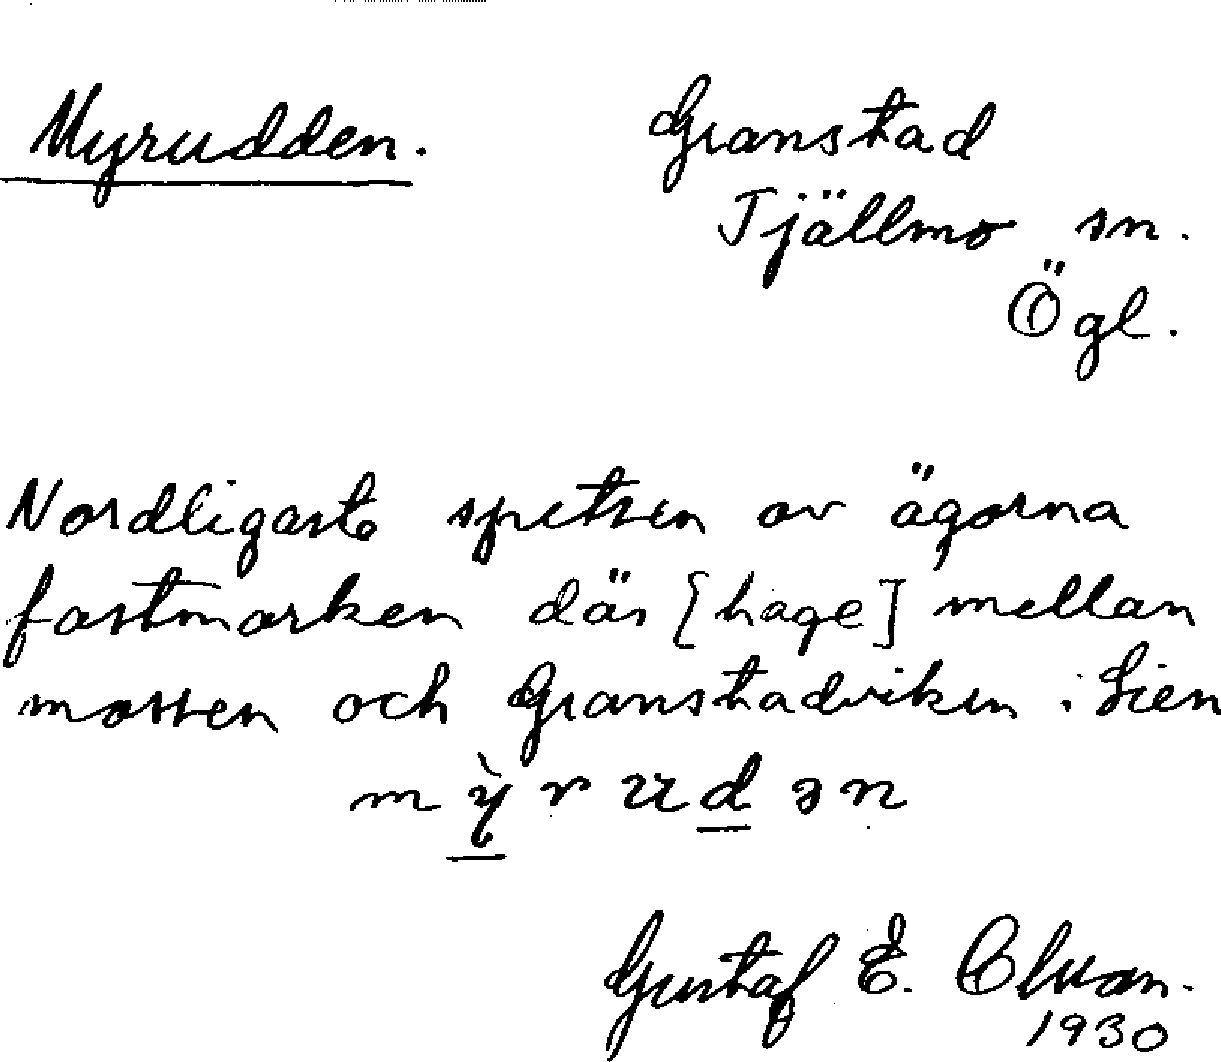 Myrudden.
Granstad
Tjällmo sn.
Ögl.
Nordligaste spetsen av ägorna
fastmarken där [hage] mellan
mossen och Granstadviken i Lien
mỳrudən
Gustaf E.
1930